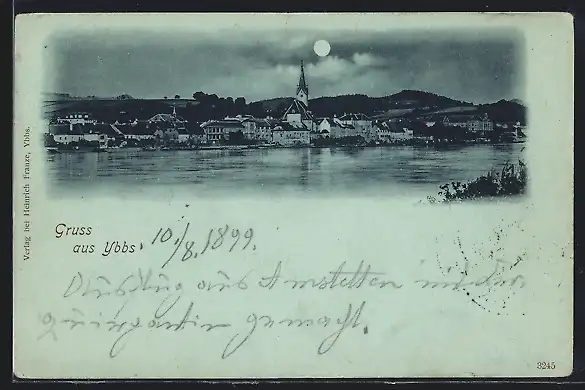 Verlag bei Heinrich Franze, Ybbs.
Gruss
aus Ybbs
10/8. 1899.
Ausflug aus Amstetten mit der
gemacht.
3245